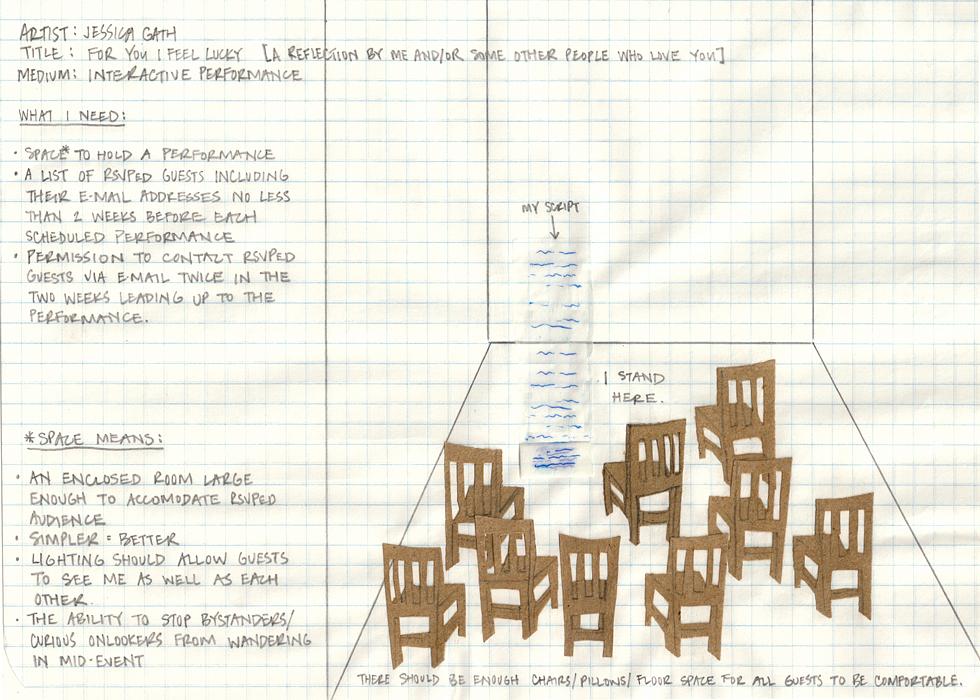 ARTIST: JESSICA GATH
TITLE: FOR YOU I FEEL LUCKY [A REFLECTION BY ME AND/OR SOME OTHER PEOPLE WHO LOVE YOU]
MEDIUM: INTERACTIVE PERFORMANCE
WHAT I NEED:
• SPACE* TO HOLD A PERFORMANCE
• A LIST OF RSVPED GUESTS INCLUDING
THEIR E-MAIL ADDRESSES NO LESS
THAN 2 WEEKS BEFORE EACH
SCHEDULED PERFORMANCE
• PERMISSION TO CONTACT RSVPED
GUESTS VIA E-MAIL TWICE IN THE
TWO WEEKS LEADING UP TO THE
PERFORMANCE.
*SPACE MEANS:
• AN ENCLOSED ROOM LARGE
ENOUGH TO ACCOMODATE RSVPED
AUDIENCE
• SIMPLER = BETTER
• LIGHTING SHOULD ALLOW GUESTS
TO SEE ME AS WELL AS EACH
OTHER.
• THE ABILITY TO STOP BYSTANDERS/
CURIOUS ONLOOKERS FROM WANDERING
IN MID-EVENT
MY SCRIPT
I STAND
HERE.
THERE SHOULD BE ENOUGH CHAIRS/PILLOWS/FLOOR SPACE FOR ALL GUESTS TO BE COMFORTABLE.